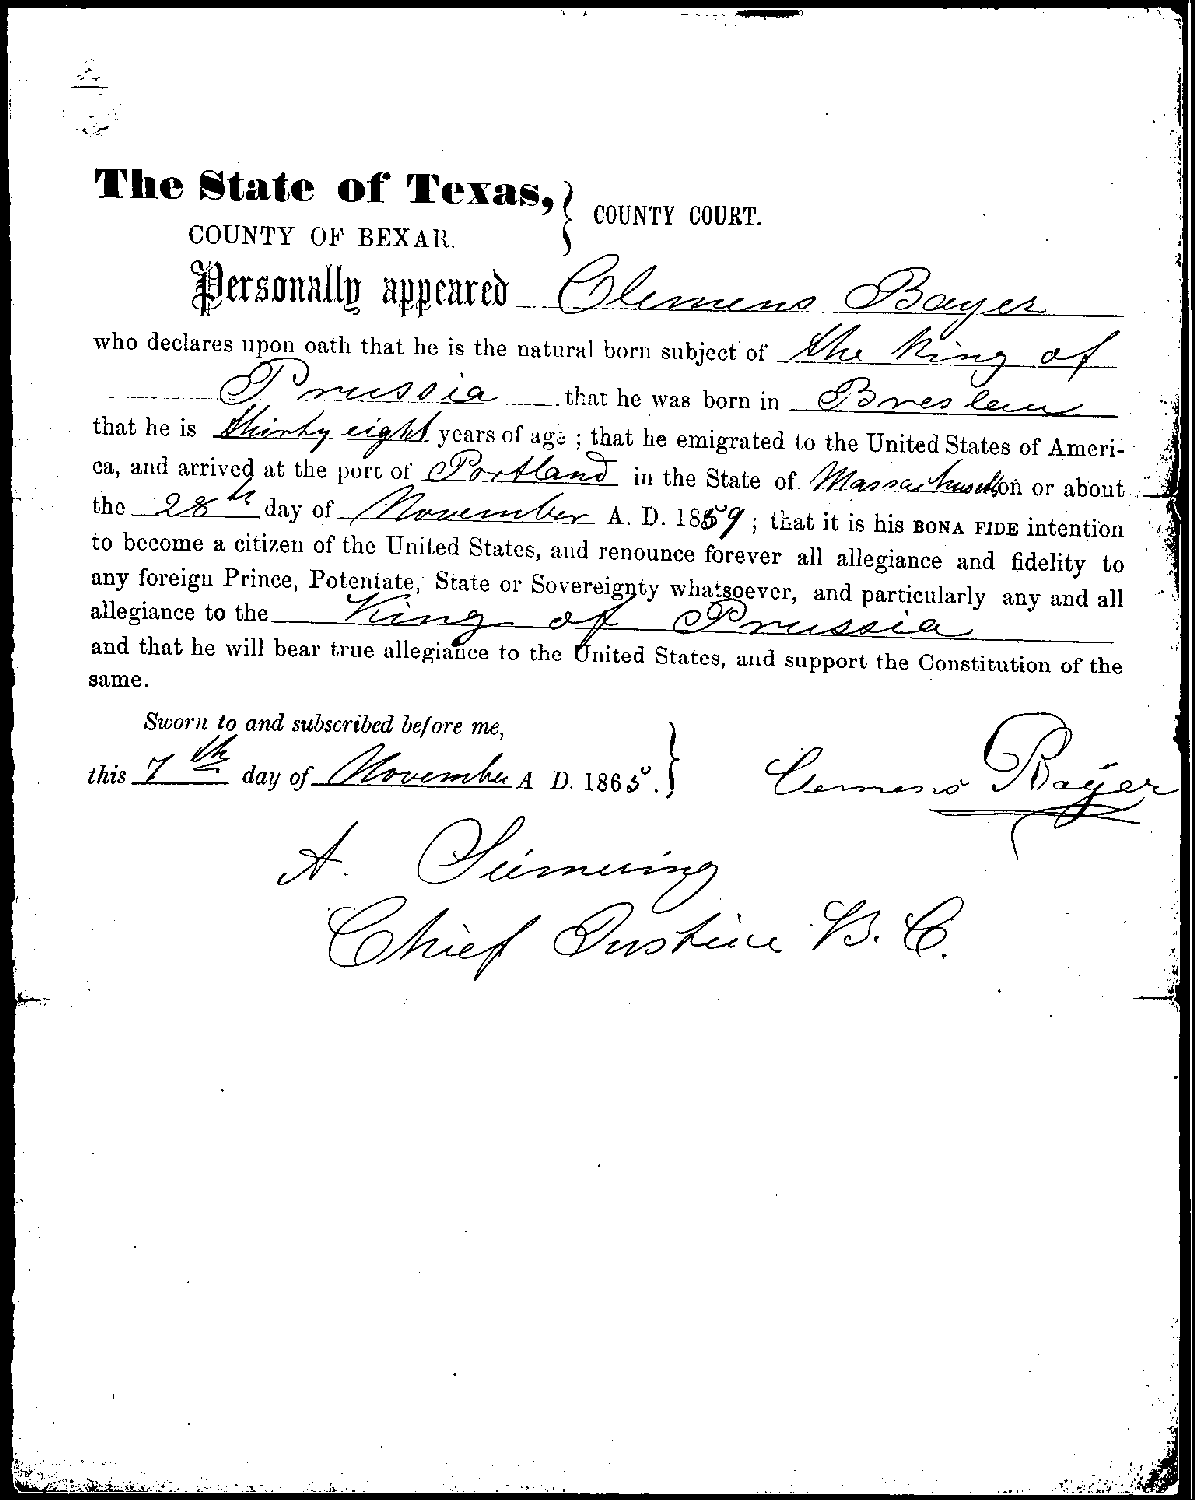 The State of Texas,
COUNTY OF BEXAR.
COUNTY COURT.
Personally appeared Clemens Bayer
who declares upon oath that he is the natural born subject of the King of
Prussia that he was born in Breslau
that he is thirty eight years of age ; that he emigrated to the United States of Ameri-
ca, and arrived at the port of Portland in the State of Massachusetts on or about
the 28th day of November A. D. 1859 ; that it is his BONA FIDE intention
to become a citizen of the United States, and renounce forever all allegiance and fidelity to
any foreign Prince, Potentate, State or Sovereignty whatsoever, and particularly any and all
allegiance to the King of Prussia
and that he will bear true allegiance to the United States, and support the Constitution of the
same.
Sworn to and subscribed before me,
this 7th day of November A D. 1865.
Clemens Bayer
A. Siemering
Chief Justice B. C.